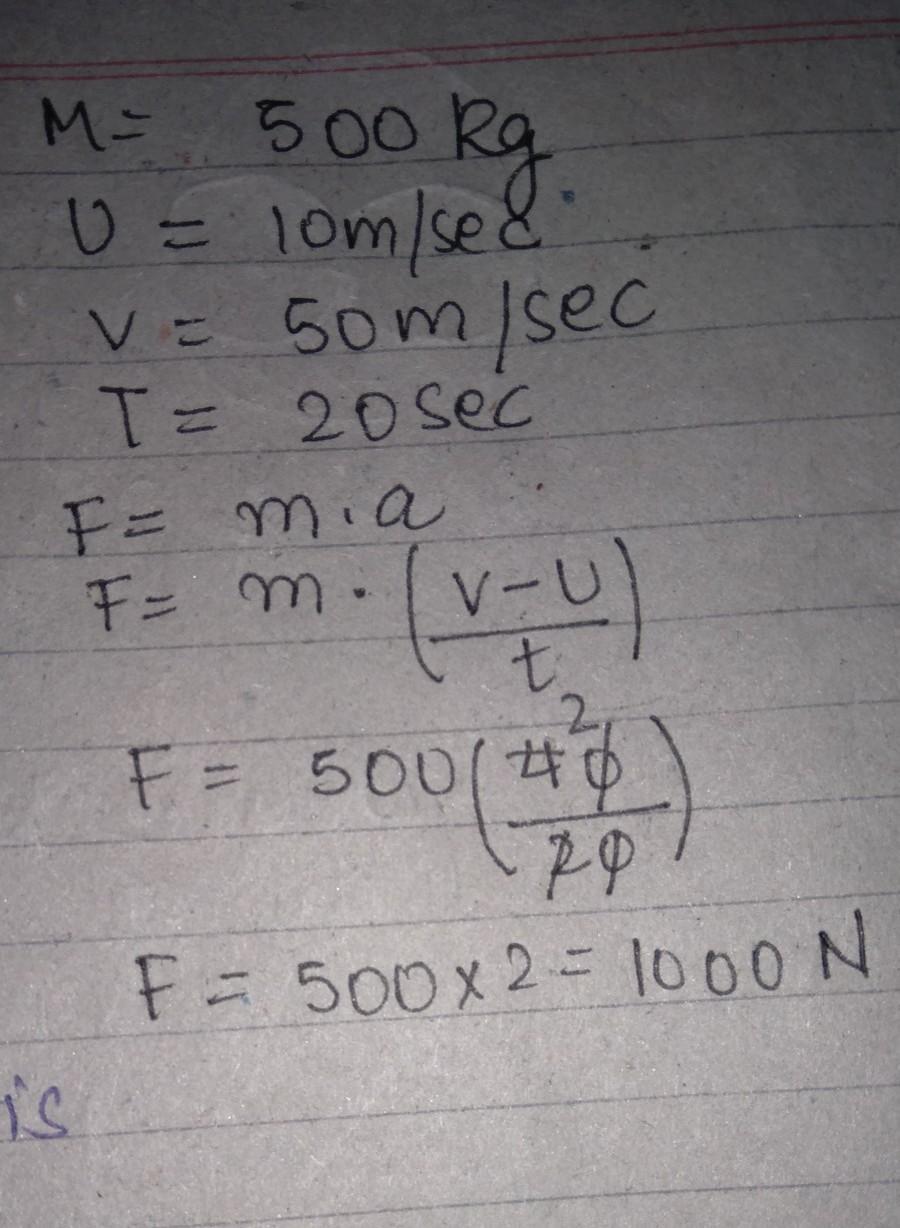 M = 500 Kg
U = 10m/sec
V = 50m/sec
T = 20 sec
F = m.a
F = m. (V-U/t)
F = 500 (40/20) 2
F = 500 x 2 = 1000 N
is